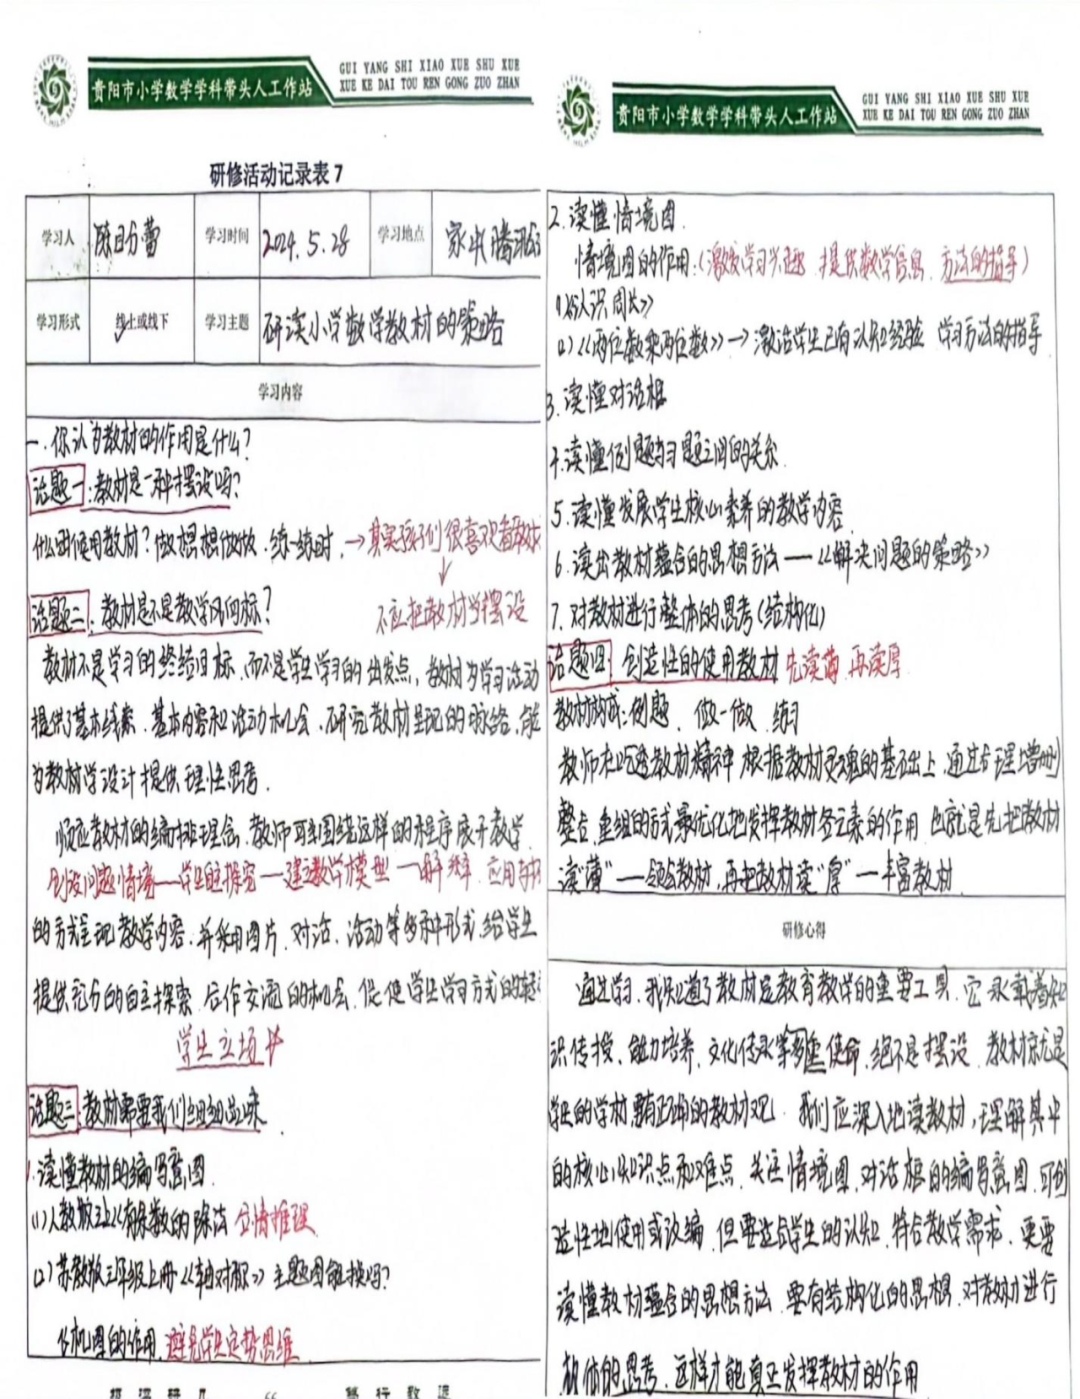 贵阳市小学数学学科带头人工作站
GUI YANG SHI XIAO XUE SHU XUE
XUE KE DAI TOU REN GONG ZUO ZHAN
研修活动记录表 7
学习人
学习时间 2024.5.28 学习地点 家中腾讯会
学习形式 线上或线下 学习主题 研读小学数学教材的策略
学习内容
一.你认为教材的作用是什么?
话题一:教材是一种摆设吗?
什么时候用教材?做想想做做.练一练时.→其实孩子们很喜欢看教材
↓
不应把教材当摆设
话题二:教材是不是教学风向标?
教材不是学习的终结目标,而不是学生学习的出发点,教材为学习活动
提供了基本线索.基本内容和活动机会.研究教材呈现的脉络,能
为教材学设计提供理性思考.
顺应教材的编排理念,教师可围绕这样的程序展开教学
创设问题情境—学生自主探究—建立数学模型—解释.应用与
的方式呈现教学内容.并采用图片.对话.活动等多种形式.给学生
提供充分的自主探索.合作交流的机会.促使学生学习方式的转
学生立场
话题三:教材需要我们细细品味
1.读懂教材的编写意图.
(1)人教版三上《有余数的除法 合情推理
(2)苏教版三年级上册《轴对称》主题图能换吗?
的作用.避免学生定势思维
贵阳市小学数学学科带头人工作站
GUI YANG SHI XIAO XUE SHU XUE
XUE KE DAI TOU REN GONG ZUO ZHAN
2.读懂情境图.
情境图的作用:(激发学习兴趣.提供数学信息.方法的指导)
(1)《认识周长》
(2)《两位数乘两位数》→激活学生已有认知经验 学习方法的指导
3.读懂对话框
4.读懂例题与习题之间的关系.
5.读懂发展学生核心素养的教学内容.
6.读出教材蕴含的思想方法——《解决问题的策略》
7.对教材进行整体的思考(结构化)
话题四:创造性的使用教材 先读薄.再读厚
教材构成:例题.做一做.练习
教师在吃透教材精神.根据教材灵魂的基础上.通过合理增删
整合.重组的方式最优化地发挥教材各元素的作用.也就是先把教材
读"薄"—领会教材,再把教材读"厚"—丰富教材.
研修心得
通过学习.我知道了教材是教育教学的重要工具.它承载着知
识传授、能力培养、文化传承等多重使命.绝不是摆设.教材就是
学生的学材.要有正确的教材观.我们应深入地读教材,理解其中
的核心知识点和难点.关注情境图.对话框的编写意图.可创
造性地使用或改编.但要适合学生的认知.符合教学需求.更要
读懂教材蕴含的思想方法.要有结构化的思想.对教材进行
整体的思考.这样才能真正发挥教材的作用